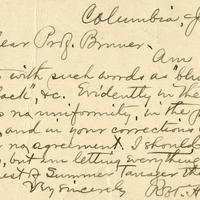 Columbia, J
ear Prof. Bruner.
Am
with such words as "blu
ack", &c. Evidently in the
s no uniformity, in the
and in your corrections
no agreement. I should
, but am letting everything
est of Summer Tanager the
Very sincerely
Rob't. A